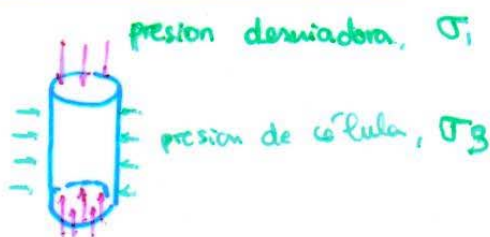 presion desviadora, σ₁
presion de célula, σ3